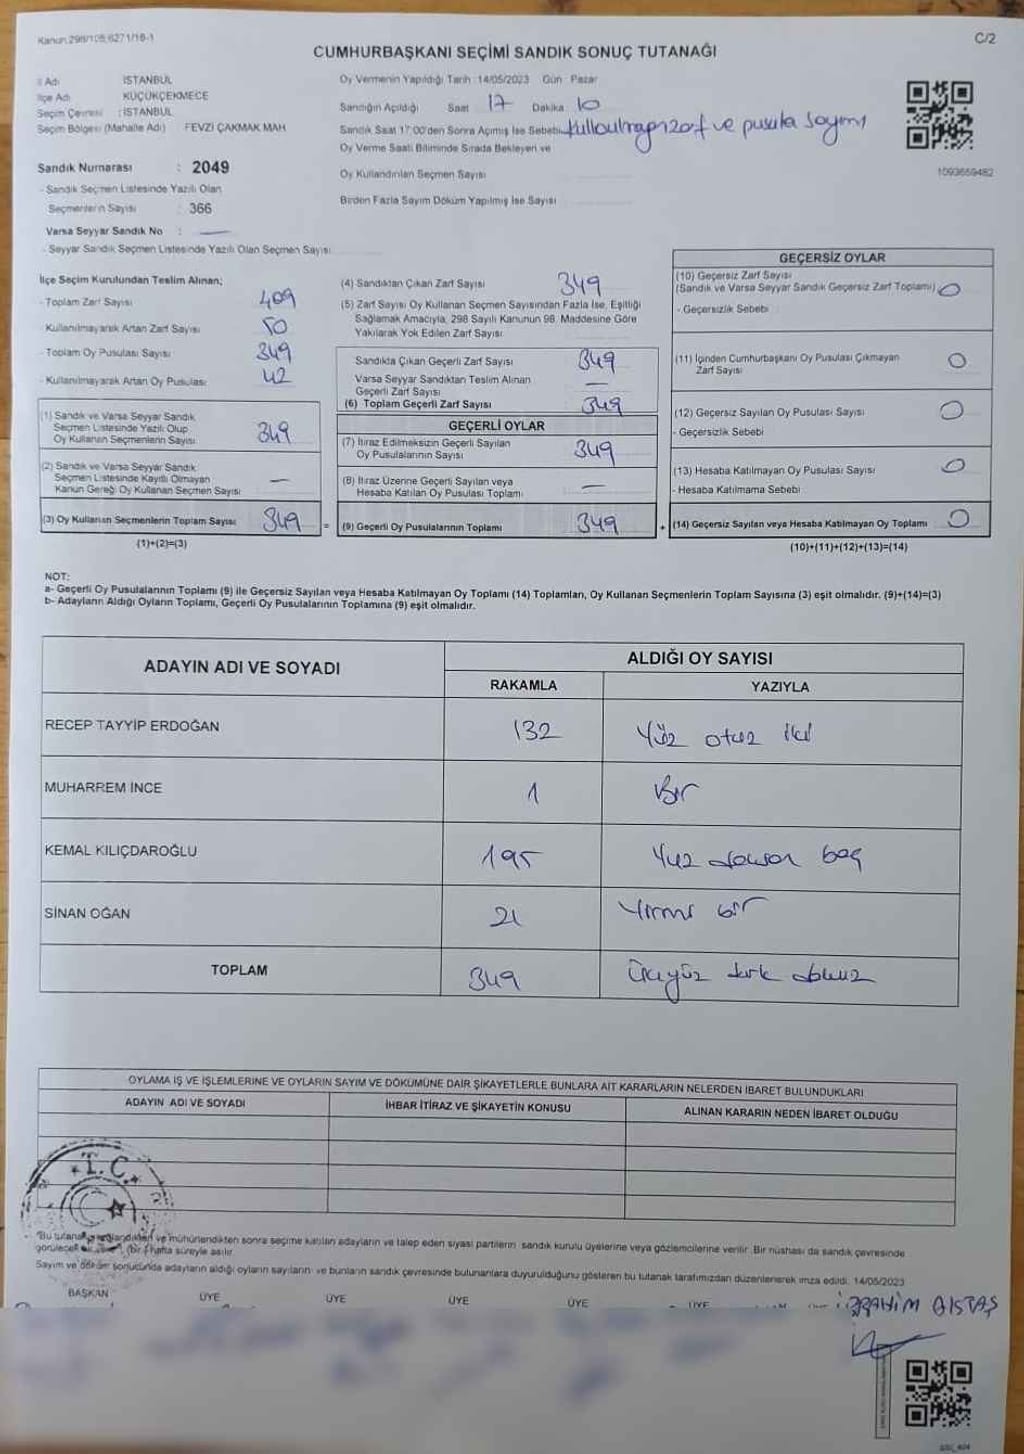 Kanun 298/105,6271/18-1
C/2
CUMHURBAŞKANI SEÇİMİ SANDIK SONUÇ TUTANAĞI
İl Adı İSTANBUL
İlçe Adı KÜÇÜKÇEKMECE
Seçim Çevresi : İSTANBUL
Seçim Bölgesi (Mahalle Adı) FEVZİ ÇAKMAK MAH
Sandık Numarası : 2049
- Sandık Seçmen Listesinde Yazılı Olan
Seçmenlerin Sayısı : 366
Varsa Seyyar Sandık No : —
- Seyyar Sandık Seçmen Listesinde Yazılı Olan Seçmen Sayısı
Oy Vermenin Yapıldığı Tarih : 14/05/2023 Gün : Pazar
Sandığın Açıldığı Saat 17 Dakika 10
Sandık Saat 17:00'den Sonra Açılmış İse Sebebi ve pusula sayımı
Oy Verme Saati Bitiminde Sırada Bekleyen ve
Oy Kullandırılan Seçmen Sayısı
Birden Fazla Sayım Döküm Yapılmış İse Sayısı
1093659482
İlçe Seçim Kurulundan Teslim Alınan;
- Toplam Zarf Sayısı 409
- Kullanılmayarak Artan Zarf Sayısı 50
- Toplam Oy Pusulası Sayısı 349
- Kullanılmayarak Artan Oy Pusulası 42
(1) Sandık ve Varsa Seyyar Sandık
Seçmen Listesinde Yazılı Olup
Oy Kullanan Seçmenlerin Sayısı 349
(2) Sandık ve Varsa Seyyar Sandık
Seçmen Listesinde Kayıtlı Olmayan
Kanun Gereği Oy Kullanan Seçmen Sayısı —
(3) Oy Kullanan Seçmenlerin Toplam Sayısı 349 =
(1)+(2)=(3)
(4) Sandıktan Çıkan Zarf Sayısı 349
(5) Zarf Sayısı Oy Kullanan Seçmen Sayısından Fazla İse, Eşitliği
Sağlamak Amacıyla, 298 Sayılı Kanunun 98. Maddesine Göre
Yakılarak Yok Edilen Zarf Sayısı
Sandıkta Çıkan Geçerli Zarf Sayısı 349
Varsa Seyyar Sandıktan Teslim Alınan
Geçerli Zarf Sayısı —
(6) Toplam Geçerli Zarf Sayısı 349
GEÇERLİ OYLAR
(7) İtiraz Edilmeksizin Geçerli Sayılan
Oy Pusulalarının Sayısı 349
(8) İtiraz Üzerine Geçerli Sayılan veya
Hesaba Katılan Oy Pusulası Toplamı —
(9) Geçerli Oy Pusulalarının Toplamı 349 +
GEÇERSİZ OYLAR
(10) Geçersiz Zarf Sayısı
(Sandık ve Varsa Seyyar Sandık Geçersiz Zarf Toplamı) 0
- Geçersizlik Sebebi
(11) İçinden Cumhurbaşkanı Oy Pusulası Çıkmayan
Zarf Sayısı 0
(12) Geçersiz Sayılan Oy Pusulası Sayısı 0
- Geçersizlik Sebebi
(13) Hesaba Katılmayan Oy Pusulası Sayısı 0
- Hesaba Katılmama Sebebi
(14) Geçersiz Sayılan veya Hesaba Katılmayan Oy Toplamı 0
(10)+(11)+(12)+(13)=(14)
NOT:
a- Geçerli Oy Pusulalarının Toplamı (9) ile Geçersiz Sayılan veya Hesaba Katılmayan Oy Toplamı (14) Toplamları, Oy Kullanan Seçmenlerin Toplam Sayısına (3) eşit olmalıdır. (9)+(14)=(3)
b- Adayların Aldığı Oyların Toplamı, Geçerli Oy Pusulalarının Toplamına (9) eşit olmalıdır.
ADAYIN ADI VE SOYADI
ALDIĞI OY SAYISI
RAKAMLA YAZIYLA
RECEP TAYYİP ERDOĞAN 132 Yüz otuz iki
MUHARREM İNCE 1 Bir
KEMAL KILIÇDAROĞLU 195 Yüz doksan beş
SİNAN OĞAN 21 Yirmi bir
TOPLAM 349 Üçyüz kırk dokuz
OYLAMA İŞ VE İŞLEMLERİNE VE OYLARIN SAYIM VE DÖKÜMÜNE DAİR ŞİKAYETLERLE BUNLARA AİT KARARLARIN NELERDEN İBARET BULUNDUKLARI
ADAYIN ADI VE SOYADI İHBAR İTİRAZ VE ŞİKAYETİN KONUSU ALINAN KARARIN NEDEN İBARET OLDUĞU
T.C.
ve mühürlendikten sonra seçime katılan adayların ve talep eden siyasi partilerin sandık kurulu üyelerine veya gözlemcilerine verilir. Bir nüshası da sandık çevresinde
(bir) hafta süreyle asılır.
Sayım ve döküm sonucunda adayların aldığı oyların sayılarını ve bunların sandık çevresinde bulunanlara duyurulduğunu gösteren bu tutanak tarafımızdan düzenlenerek imza edildi. 14/05/2023
BAŞKAN ÜYE ÜYE ÜYE ÜYE ÜYE
İBRAHİM